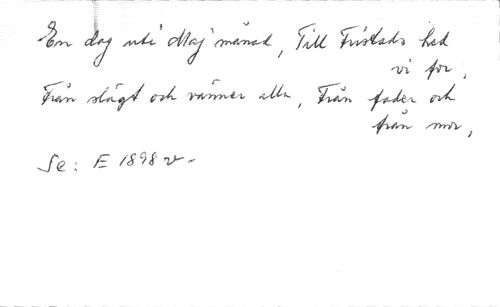 En dag uti Maj månad, Till Fristads hed
vi for,
Från slägt och vänner alla, Från fader och
från mor,
Se: E 1898 v.